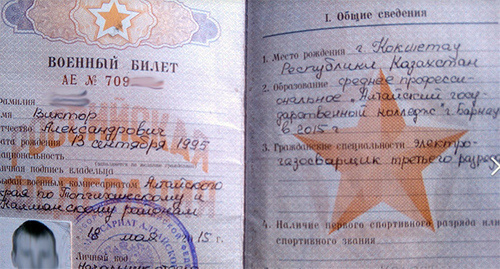 ВОЕННЫЙ БИЛЕТ
АЕ № 709
амилия
мя Виктор
тчество Александрович
ата рождения 13 сентября 1995
ациональность
ичная подпись владельца
ыдан военным комиссариатом Алтайского
края по Топчихинскому и
Калманскому районам
18 мая 2015 г.
Личный код
I. Общие сведения
1. Место рождения г. Кокшетау
Республики Казахстан
2. Образование среднее професси-
ональное "Алтайский госу-
дарственный колледж" г. Барнау
в 2015 г.
3. Гражданские специальности Электро-
газосварщик третьего разря
4. Наличие первого спортивного разряда или
спортивного звания